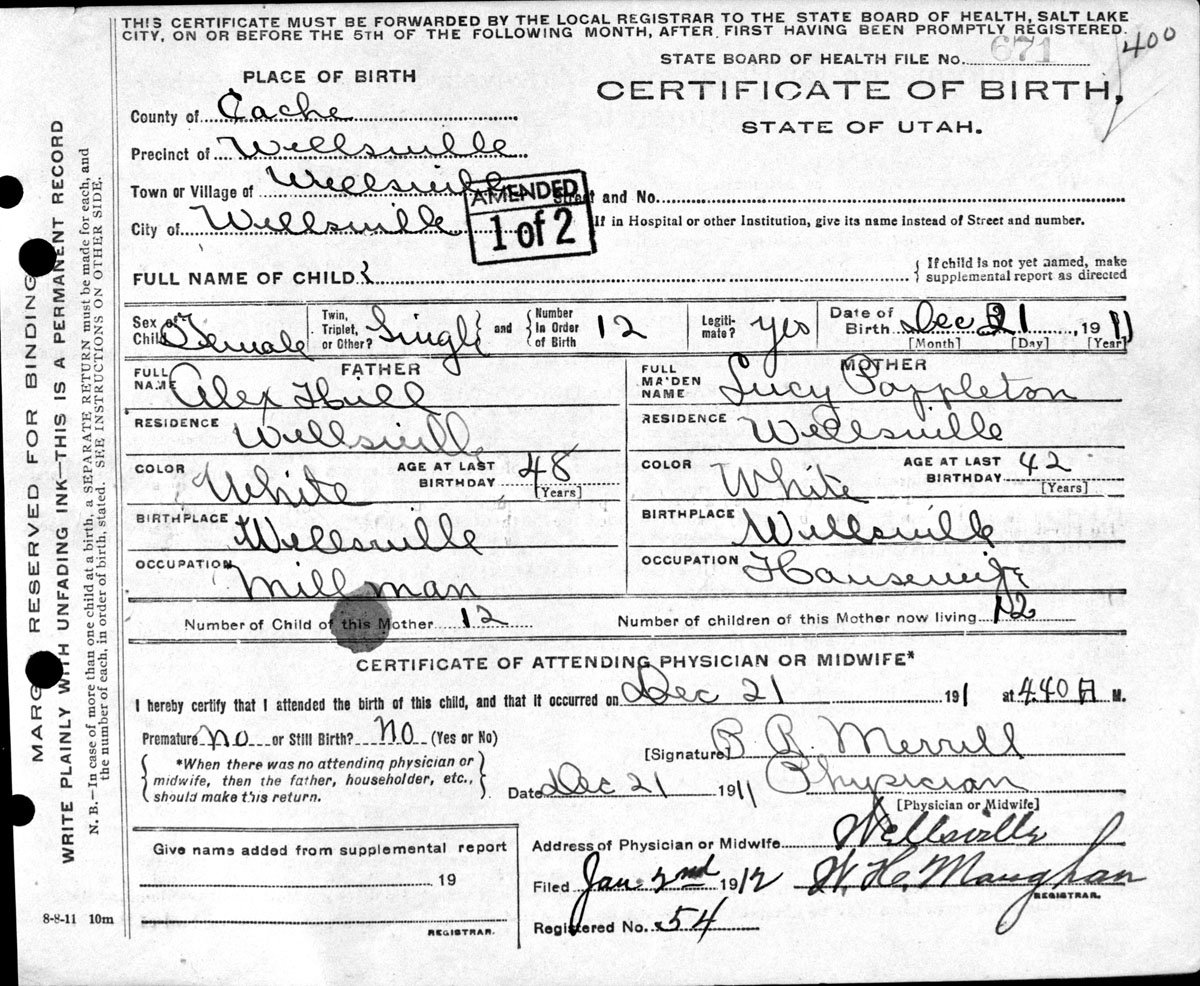 THIS CERTIFICATE MUST BE FORWARDED BY THE LOCAL REGISTRAR TO THE STATE BOARD OF HEALTH, SALT LAKE
CITY, ON OR BEFORE THE 5TH OF THE FOLLOWING MONTH, AFTER FIRST HAVING BEEN PROMPTLY REGISTERED.
400
STATE BOARD OF HEALTH FILE NO. 671
CERTIFICATE OF BIRTH,
STATE OF UTAH.
PLACE OF BIRTH
County of Cache
Precinct of Wellsville
Town or Village of Wellsville Street and No.
City of Wellsville If in Hospital or other Institution, give its name instead of Street and number.
AMENDED
1 of 2
FULL NAME OF CHILD { { If child is not yet named, make
supplemental report as directed
Sex of Child Female
Twin, Triplet, or Other? Singl and Number in Order of Birth 12
Legitimate? yes
Date of Birth Dec 21, 1911
[Month] [Day] [Year]
FATHER
FULL NAME Alex Hill
RESIDENCE Wellsville
COLOR White AGE AT LAST BIRTHDAY 48 [Years]
BIRTHPLACE Wellsville
OCCUPATION Mill man
MOTHER
FULL MAIDEN NAME Lucy Poppleton
RESIDENCE Wellsville
COLOR White AGE AT LAST BIRTHDAY 42 [Years]
BIRTHPLACE Wellsville
OCCUPATION Housewife
Number of Child of this Mother 12 Number of children of this Mother now living 12
CERTIFICATE OF ATTENDING PHYSICIAN OR MIDWIFE*
I hereby certify that I attended the birth of this child, and that it occurred on Dec 21 1911 at 440 A M.
Premature No or Still Birth? No (Yes or No)
*When there was no attending physician or
midwife, then the father, householder, etc.,
should make this return.
[Signature] Merrill
Date Dec 21 1911 Physician
[Physician or Midwife]
Address of Physician or Midwife Wellsville
Filed Jan 2nd 1912 W. H. Maughan
REGISTRAR.
Registered No. 54
Give name added from supplemental report
19
REGISTRAR.
8-8-11 10m
MARGIN RESERVED FOR BINDING
WRITE PLAINLY WITH UNFADING INK—THIS IS A PERMANENT RECORD
N. B.—In case of more than one child at a birth, a SEPARATE RETURN must be made for each, and
the number of each, in order of birth, stated. SEE INSTRUCTIONS ON OTHER SIDE.